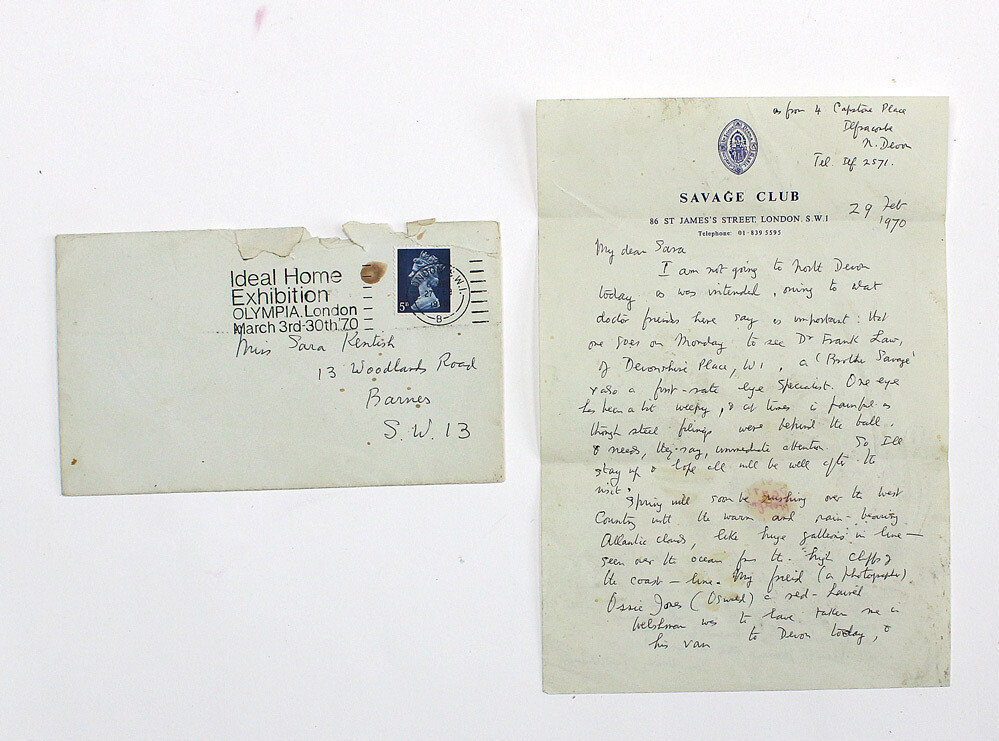 Ideal Home
Exhibition
OLYMPIA, London
March 3rd-30th '70
5D
S.W.1.
B
Miss Sara Kentish
13 Woodlands Road
Barnes
S.W. 13
as from 4 Capstone Place
Ilfracombe
N. Devon
Tel. Ilf 2571.
SAVAGE CLUB
86 ST JAMES'S STREET, LONDON, S.W.1
Telephone: 01-839 5595
29 Feb
1970
My dear Sara
I am not going to North Devon
today as was intended, owing to what
doctor friends here say is important: that
one goes on Monday to see Dr Frank Law,
of Devonshire Place, W1, a 'Brother Savage'
& also a first-rate eye specialist. One eye
has been a bit weepy, & at times is painful as
though steel filings were behind the ball,
& needs, they say, immediate attention. So I'll
stay up & hope all will be well after the
visit.
Spring will soon be rushing over the West
Country with the warm and rain-bearing
Atlantic clouds, like huge galleons in line —
seen over the ocean from the high cliffs of
the coast-line. My friend (a photographer)
Ossie Jones (Oswald) a red-haired
Welshman was to have taken me in
his van to Devon today, &